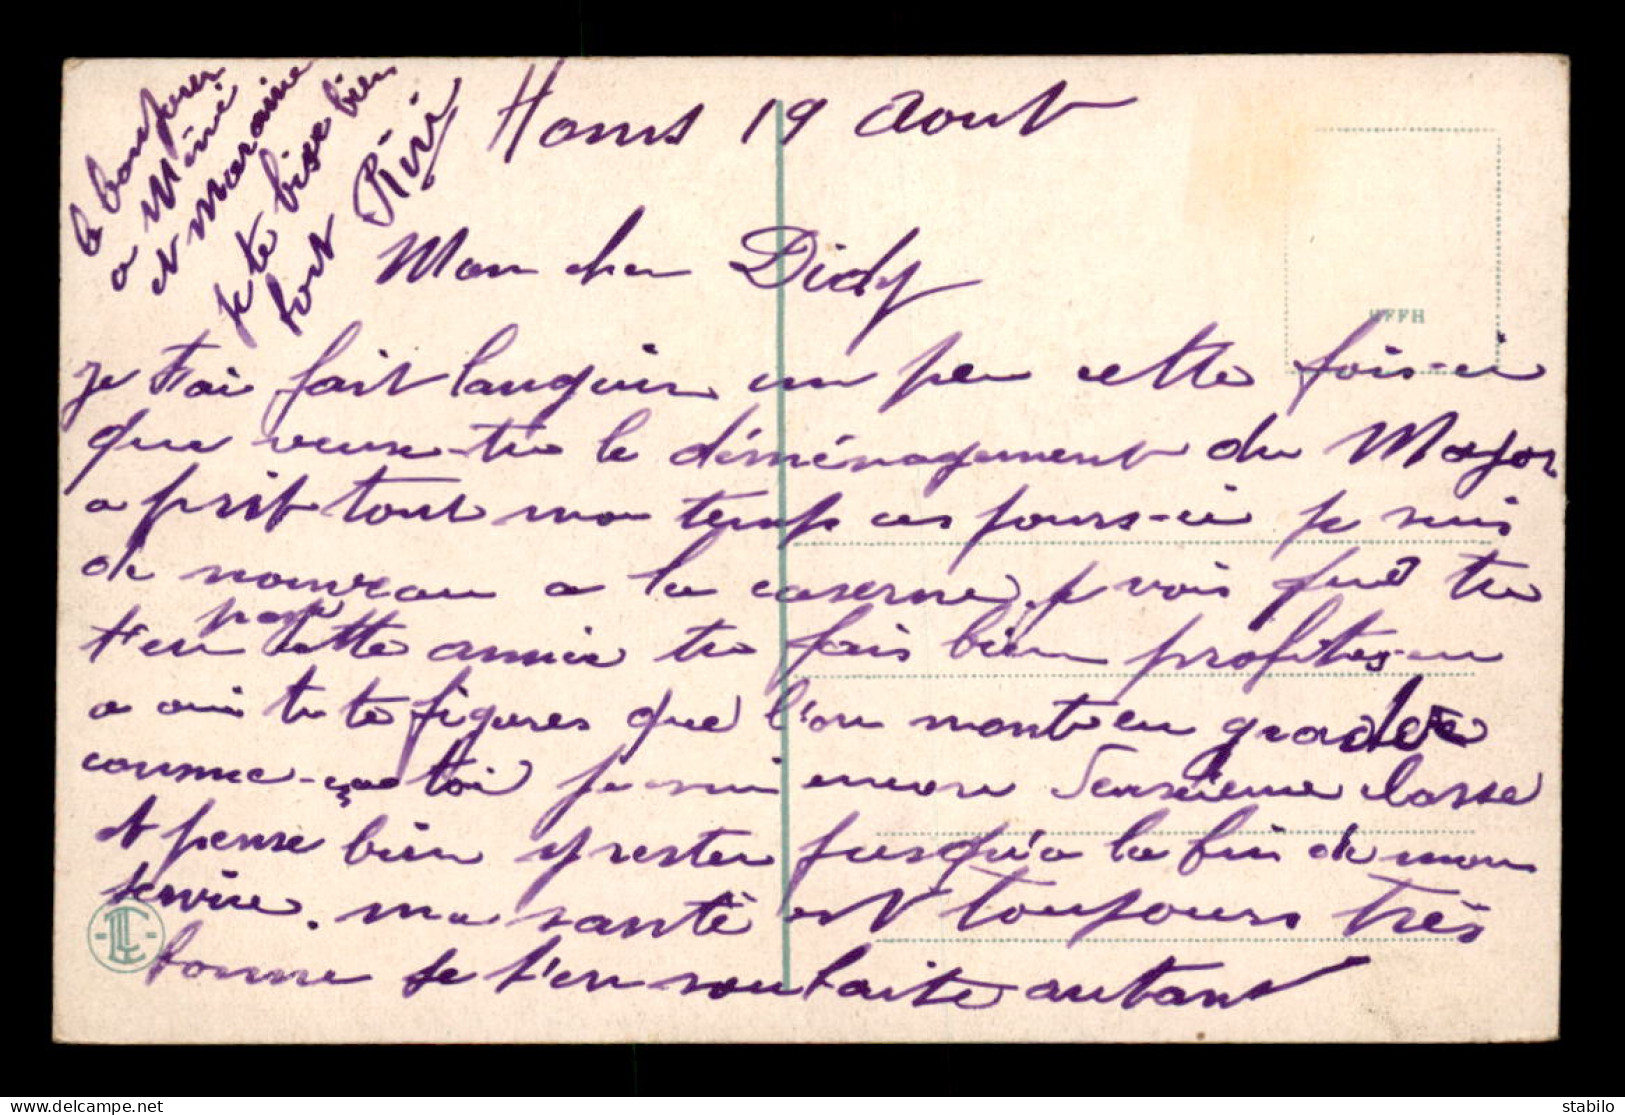 Homs 19 Aout
Mon cher Didy
je t'ai fait languir un peu cette fois-ci
que veux-tu le déménagement du Major
a prit tout mon temps ces jours-ci je suis
de nouveau a la caserne, je vois que tu
t'en paye
cette année tu fais bien profites-en
a oui tu te figures que l'on monte en grade
comme ça toi je suis encore deuxieme classe
et pense bien y rester jusqu'a la fin de mon
service. ma santé est toujours très
bonne je t'en souhaite autant
le bonjour
a Mimi
et marraine
je te bise bien
fort Riri
HFFH
LTC
stabilo